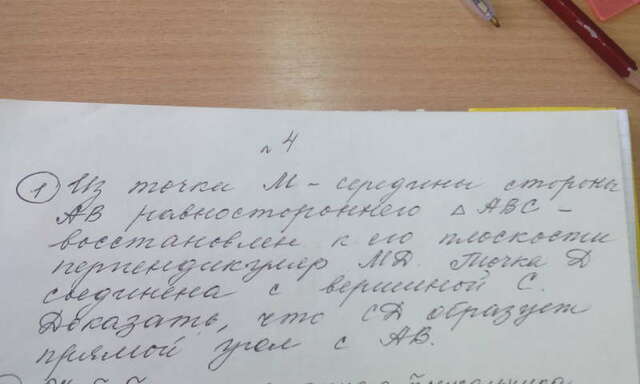 № 4
1 Из точки М - середины стороны
АВ равностороннего △ АВС -
восстановлен к его плоскости
перпендикуляр МД. Точка Д
соединена с вершиной С.
Доказать, что СД образует
прямой угол с АВ.